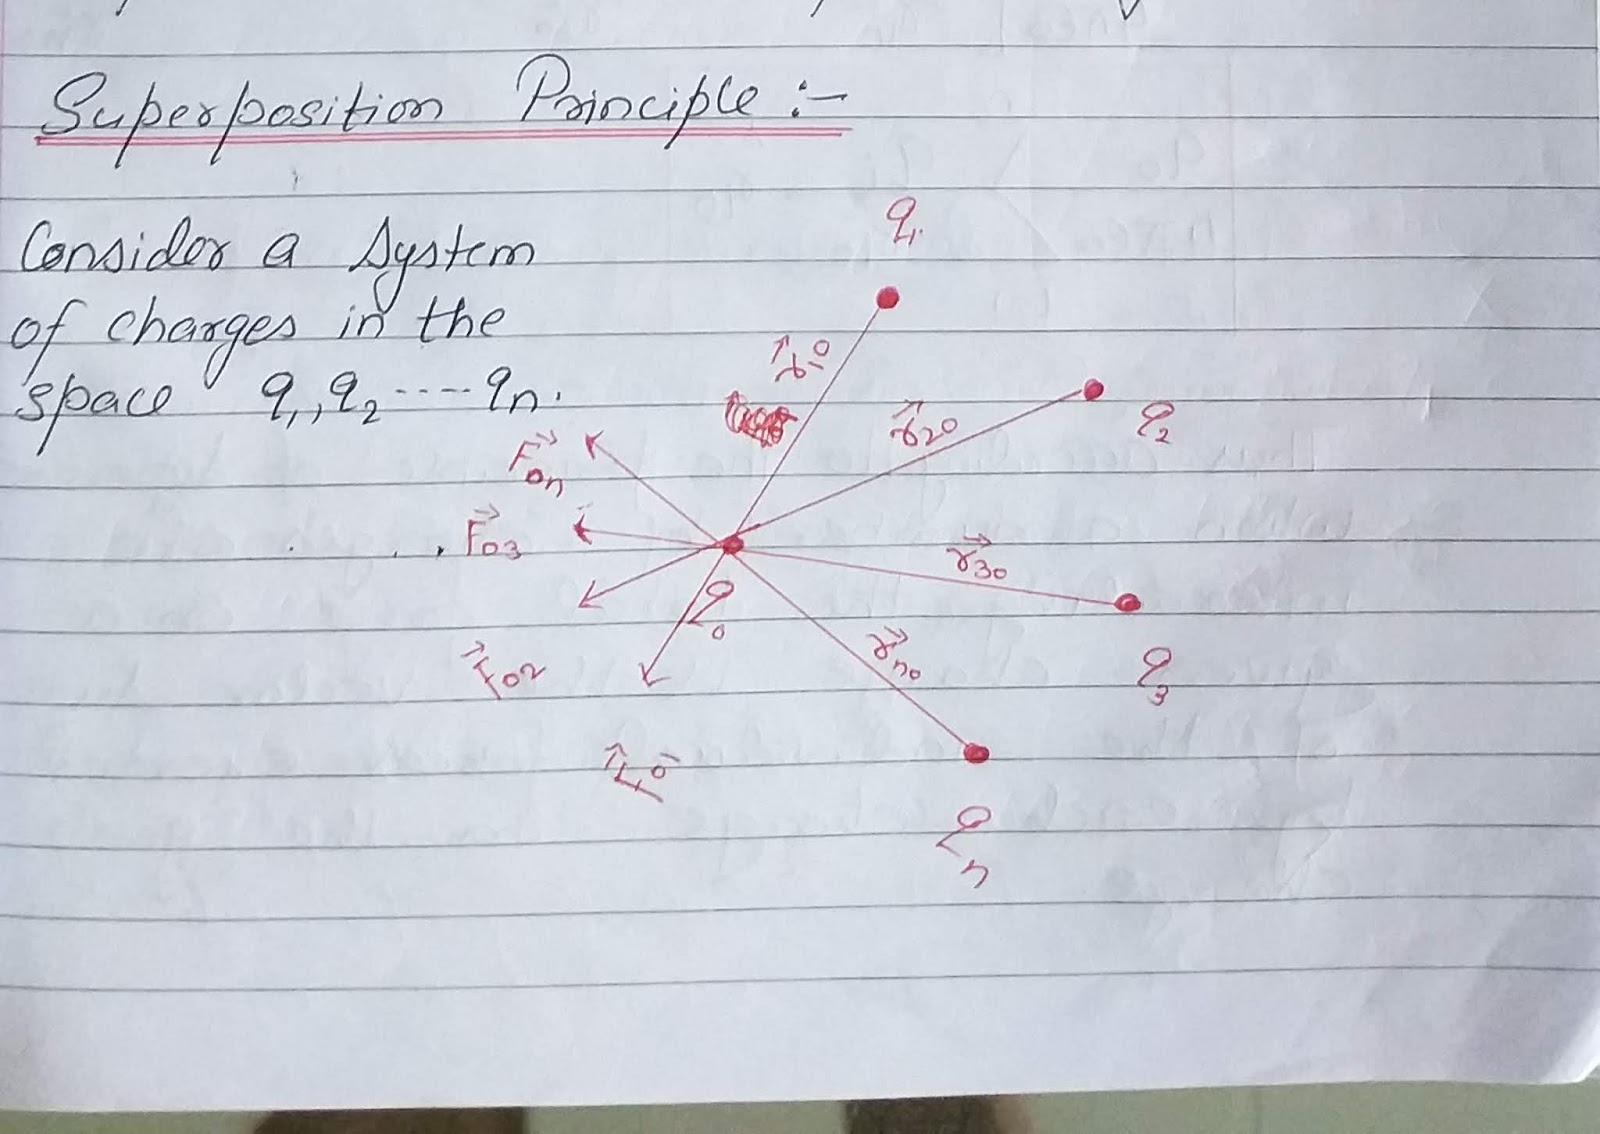 Superposition Principle :-
Consider a System
of charges in the
space q₁, q₂ ---- qn.
q₁
r⃗₁₀
q₂
r⃗₂₀
F⃗₀n
F⃗₀₃
r⃗₃₀
q₀
q₃
F⃗₀₂
r⃗n₀
F⃗₀₁
qn